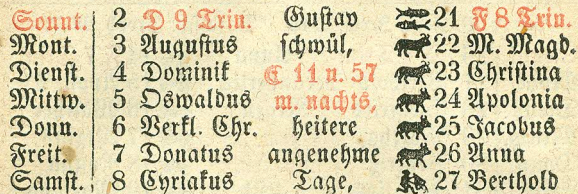 Sonnt. 2 D 9 Trin. Gustav 21 F 8 Trin.
Mont. 3 Augustus schwül, 22 M. Magd.
Dienst. 4 Dominik ☾ 11 u. 57 23 Christina
Mittw. 5 Oswaldus m. nachts, 24 Apolonia
Donn. 6 Verkl. Chr. heitere 25 Jacobus
Freit. 7 Donatus angenehme 26 Anna
Samst. 8 Cyriakus Tage, 27 Berthold